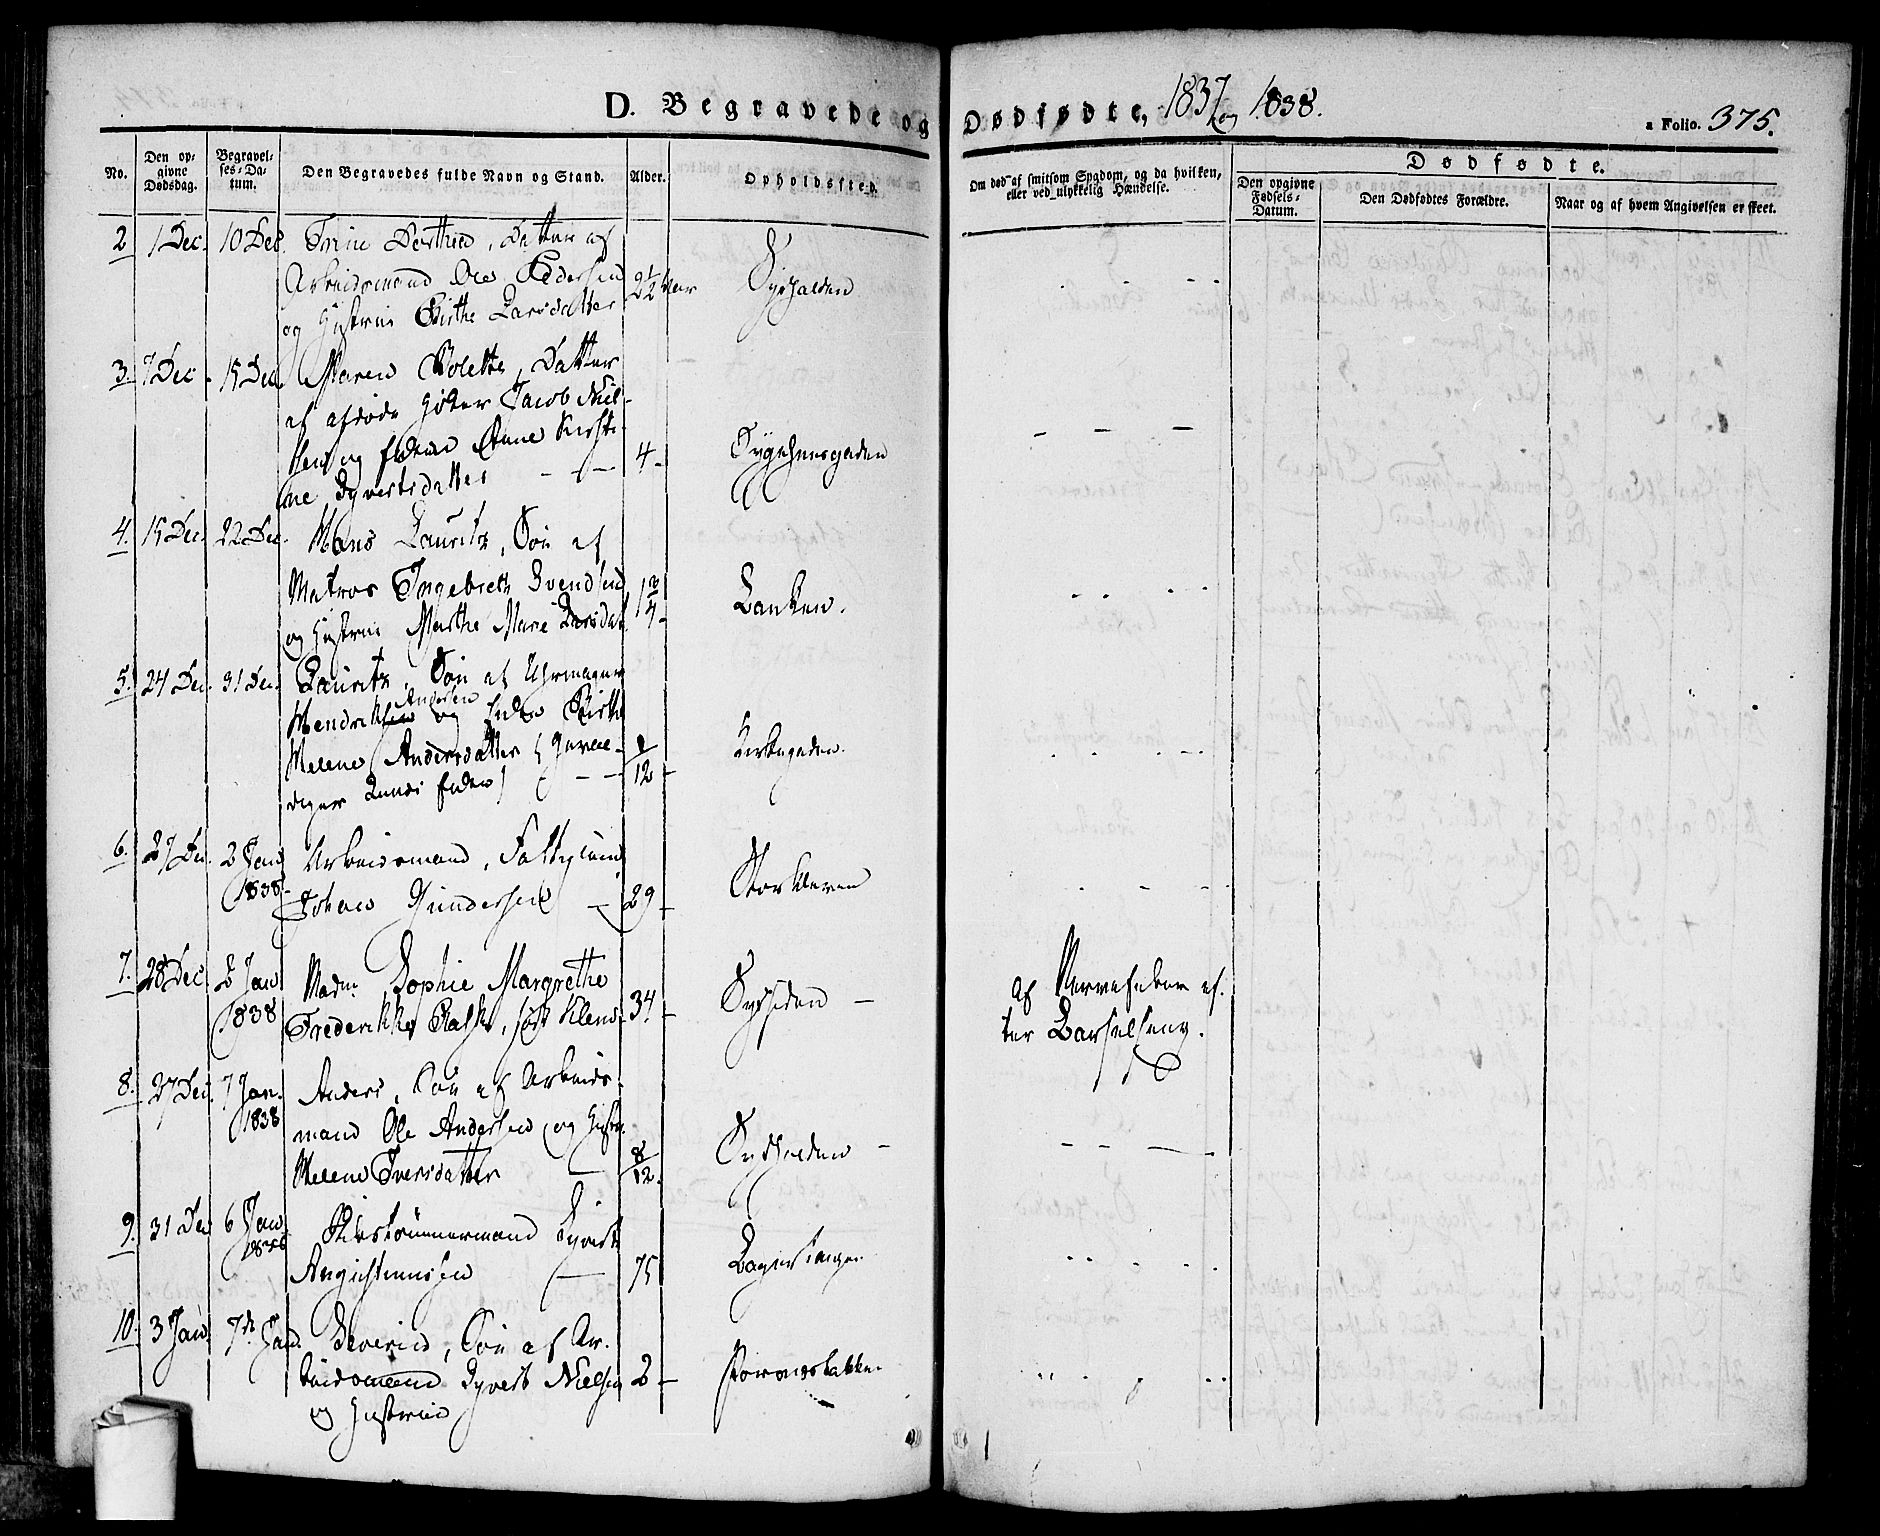 D. Begravede og Dødfødte, 1837 og 1838.
a Folio. 375.
No.
Den opgivne Dødsdag.
Begravelses-Datum.
Den Begravedes fulde Navn og Stand.
Alder.
Opholdssted.
Om død af smitsom Sygdom, og da hvilken, eller ved ulykkelig Hændelse.
Dødfødte.
Den opgivne Fødsels-Datum.
Den Dødfødtes Forældre.
Naar og af hvem Angivelsen er skeet.
2 1 Dec. 10 Dec. Trine Dorthea, Datter af
Arbeidsmand Ole Pedersen 2½ Aar
og Hustrue Birthe Larsdatter
3. 7 Dec. 15 Dec. Maren Bolette, Datter
af afdøde Jacob Niel-
sen og Anne Kirsti-
ne Syvertsdatter 4 - Sygehuusgaden
4. 15 Dec. 22 Dec. Hans Lauritz, Søn af
Matros Ingebreth Svendsen 1¾ - Banken.
og Hustrue Marthe Marie Larsdat.
5. 24 Dec. 31 Dec. Lauritz, Søn af Uhrmager
Andersen
Hendriksen og Birthe
Helene Andersdatter
/12 - Kirkegaden.
6. 27 Dec. 2 Jan 1838. Arbeidsmand,
Johan Gundersen 29 -
7. 28 Dec. 2 Jan 1838 Madm. Sophie Margrethe
Frederikke, født 34 - Sydsiden -
af Nervefeber ef-
ter Barselseng.
8. 27 Dec. 7 Jan. 1838 Anders, Søn af Arbeids-
mand Ole Andersen og Hustr.
Helene Iversdatter 8/12. Sydhalden -
9. 31 Dec 6 Jan 1838 Skibstømmermand Syvert
75
10. 3 Jan. 7de Jan. Severin, Søn af Ar-
beidsmand Syvert Nielsen 2 -
og Hustrue